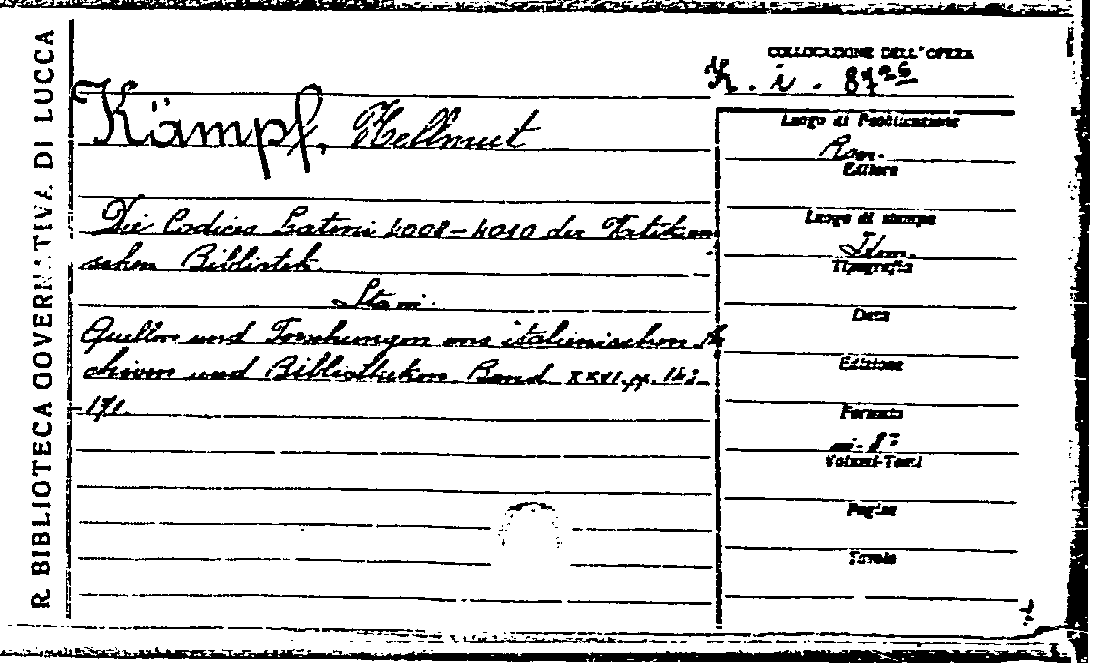 R. BIBLIOTECA GOVERNATIVA DI LUCCA
COLLOCAZIONE DELL'OPERA
Kämpf, Hellmut
Die Codices Latini 4008-4010 der Vatikani
schen Bibliotek.
Quellen und Forschungen aus italienischen Ar
chiven und Bibliotheken Band XXVI. pp. 143-
-171.
Luogo di Pubblicazione
Rom.
Editore
Luogo di stampa
Idem.
Tipografia
Data
Edizione
Formato
in-8°
Volumi-Tomi
Pagine
Tavole